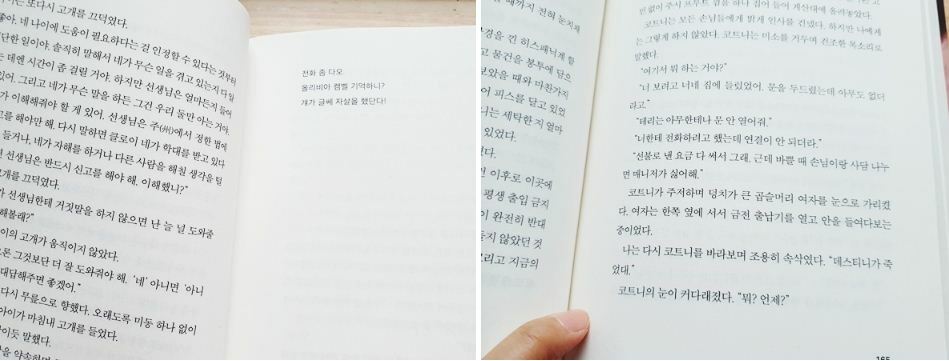 는 또다시 고개를 끄덕였다.
좋아. 네 나이에 도움이 필요하다는 걸 인정할 수 있다는 것부터
단한 일이야. 솔직히 말해서 네가 무슨 일을 겪고 있는지 다 알
는 데엔 시간이 좀 걸릴 거야. 하지만 선생님은 얼마든지 들어
있어. 그리고 네가 무슨 말을 하든 그건 우리 둘만 아는 거야.
가 이해해줘야 할 게 있어. 선생님은 주(州)에서 정한 법에
고를 해야만 해. 다시 말하면 클로이 네가 학대를 받고 있다
들거나, 네가 자해를 하거나 다른 사람을 해칠 생각을 털
선생님은 반드시 신고를 해야 해. 이해했니?"
고개를 끄덕였다.
가 선생님한테 거짓말을 하지 않으면 난 늘 널 도와줄
해볼래?"
이의 고개가 움직이지 않았다.
론 그것보단 더 잘 도와줘야 해. '네' 아니면 '아니
대답해주면 좋겠어."
다시 무릎으로 향했다. 오래도록 미동 하나 없이
아이가 마침내 고개를 들었다.
이듯 말했다.
전화 좀 다오.
올리비아 캠벨 기억하니?
걔가 글쎄 자살을 했단다!
때까지 전혀 눈치채
경을 낀 히스패닉계 할
고 물건을 봉투에 담으
보았을 때와 마찬가지
어 피스를 달고 있었
니는 세탁한 지 얼마
있었다.
다.
이후로 이곳에
평생 출입 금지
이 완전히 반대
듣지 않았던 것
그리고 지금의
코트니는 모든 손님들에게 밝게 인사를 건넸다. 하지만 나에게
는 그렇게 하지 않았다. 코트니는 미소를 거두며 건조한 목소리로
말했다.
"여기서 뭐 하는 거야?"
"너 보려고 너네 집에 들렀었어. 문을 두드렸는데 아무도 없더
라고."
"테리는 아무한테나 문 안 열어줘."
"너한테 전화하려고 했는데 연결이 안 되더라."
"선불로 낸 요금 다 써서 그래. 근데 바쁠 때 손님이랑 사담 나누
면 매니저가 싫어해."
코트니가 주저하며 덩치가 큰 곱슬머리 여자를 눈으로 가리켰
다. 여자는 한쪽 옆에 서서 금전 출납기를 열고 안을 들여다보는
중이었다.
나는 다시 코트니를 바라보며 조용히 속삭였다. "데스티니가 죽
었대."
코트니의 눈이 커다래졌다. "뭐? 언제?"
165